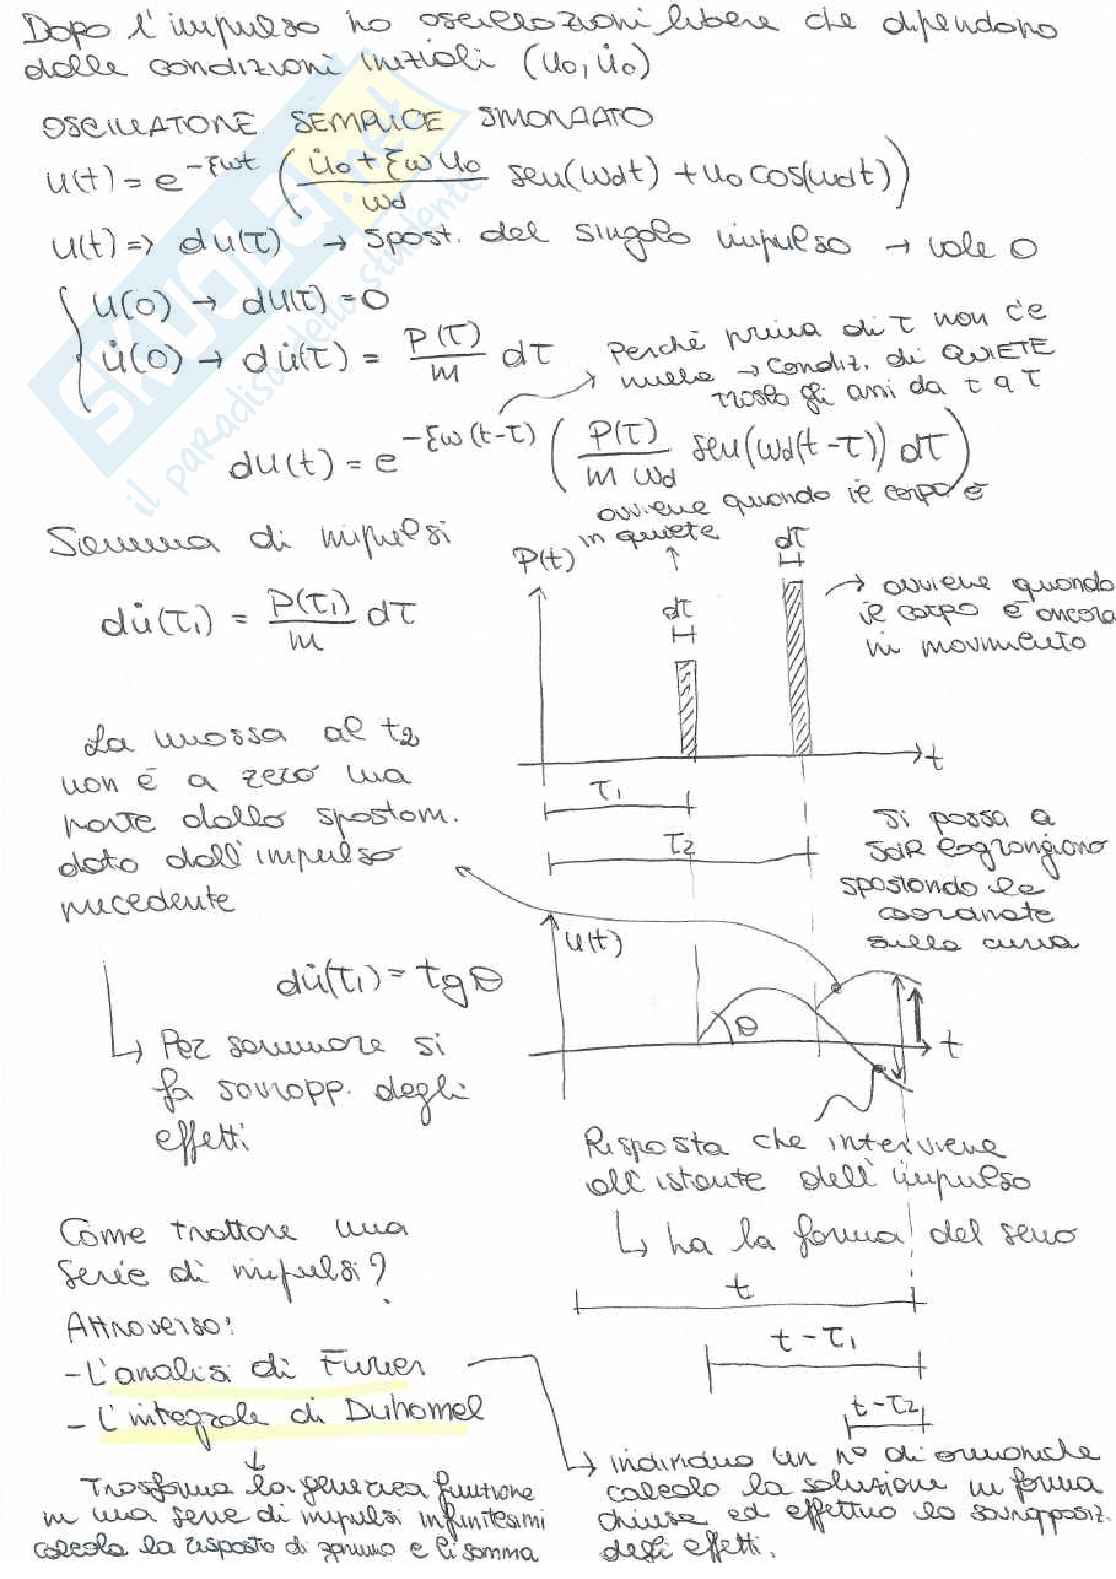 Dopo l'impulso ho oscillazioni libere che dipendono
dalle condizioni iniziali (u₀, u̇₀)
OSCILLATORE SEMPLICE SMORZATO
u(t) = e^(-ξωt) ( (u̇₀ + ξω u₀)/ωd sen(ωdt) + u₀ cos(ωdt) )
u(t) => du(τ) → spost. del singolo impulso → vale 0
u(0) → du(τ) = 0
u̇(0) → du̇(τ) = P(τ)/m dτ
Perché prima di τ non c'è
nulla → Condiz. di QUIETE
traslo gli assi da t a τ
du(t) = e^(-ξω(t-τ)) ( P(τ)/(m ωd) sen(ωd(t-τ)) dτ )
avviene quando il corpo è
in quiete
Somma di impulsi
du̇(τ₁) = P(τ₁)/m dτ
P(t)
dτ
dτ
→ avviene quando
il corpo è ancora
in movimento
t
τ₁
τ₂
La massa al t₂
non è a zero ma
parte dallo spostam.
dato dall'impulso
precedente
Si passa a
SdR lagrangiano
spostando le
coordinate
sulla curva
u(t)
θ
t
du̇(τ₁) = tg θ
Per sommare si
fa sovrapp. degli
effetti
Risposta che interviene
all'istante dell'impulso
ha la forma del seno
t
t - τ₁
t - τ₂
Come trattare una
serie di impulsi?
Attraverso:
- L'analisi di Furier
- L'integrale di Duhamel
Trasforma la generica funzione
in una serie di impulsi infinitesimi
calcola la risposta di ognuno e li somma
individuo un n° di armoniche
calcolo la soluzione in forma
chiusa ed effettuo la sovrapposiz.
degli effetti.
SKUOLA.net
il paradiso dello studente